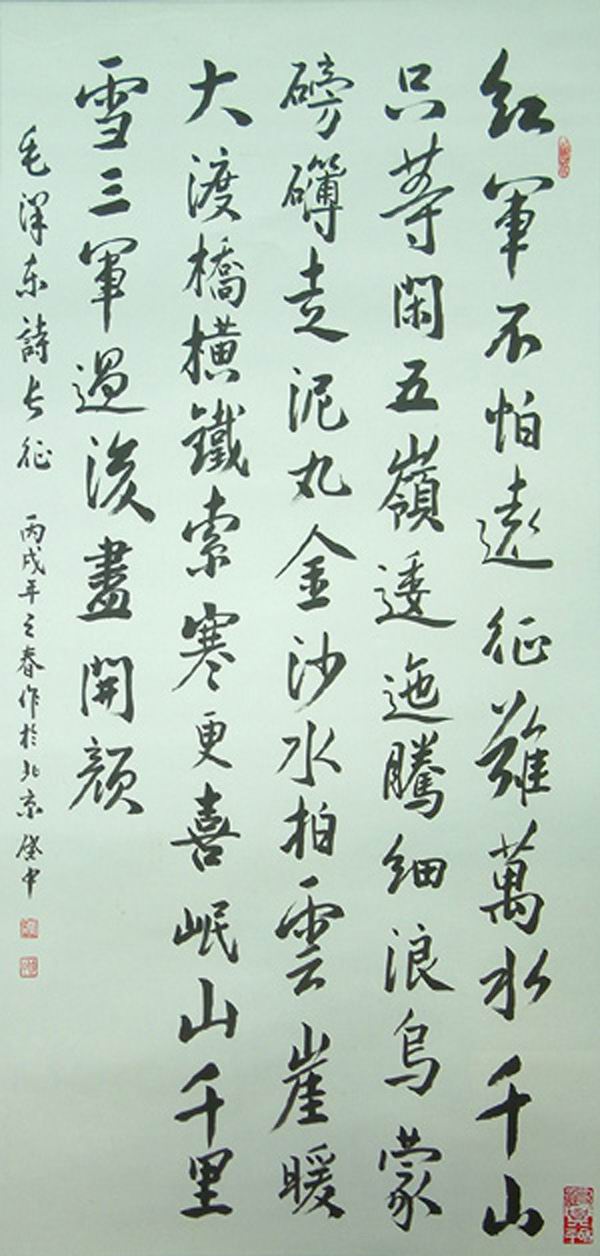 紅軍不怕遠征難萬水千山
只等閑五嶺逶迤騰細浪烏蒙
磅礴走泥丸金沙水拍雲崖暖
大渡橋橫鐵索寒更喜岷山千里
雪三軍過後盡開顏
毛澤东詩长征 丙戌年之春作於北京